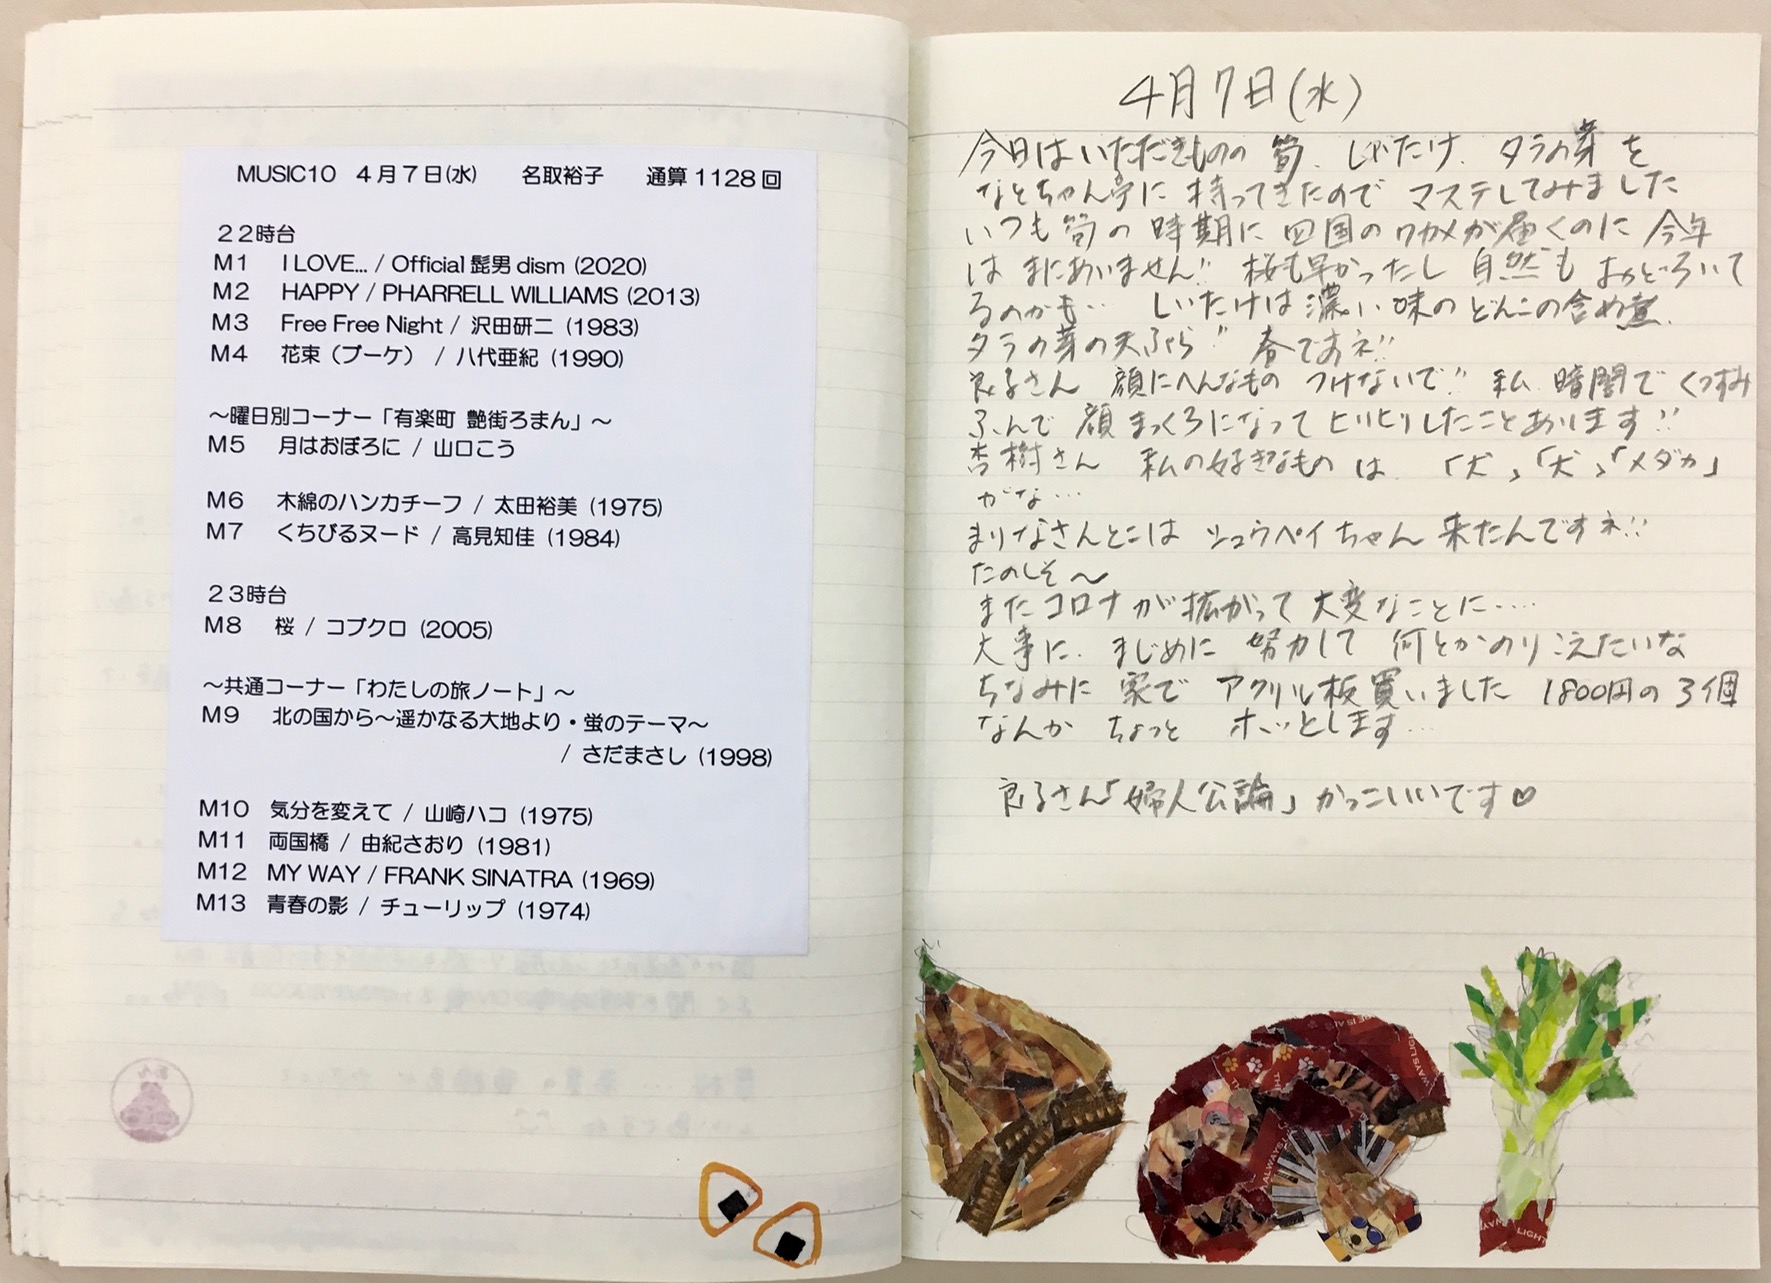 MUSIC10 4月7日(水) 名取裕子 通算1128回
22時台
M1 I LOVE... / Official髭男dism (2020)
M2 HAPPY / PHARRELL WILLIAMS (2013)
M3 Free Free Night / 沢田研二 (1983)
M4 花束（ブーケ） / 八代亜紀 (1990)
～曜日別コーナー「有楽町 艶街ろまん」～
M5 月はおぼろに / 山口こう
M6 木綿のハンカチーフ / 太田裕美 (1975)
M7 くちびるヌード / 高見知佳 (1984)
23時台
M8 桜 / コブクロ (2005)
～共通コーナー「わたしの旅ノート」～
M9 北の国から～遥かなる大地より・蛍のテーマ～
/ さだまさし (1998)
M10 気分を変えて / 山崎ハコ (1975)
M11 両国橋 / 由紀さおり (1981)
M12 MY WAY / FRANK SINATRA (1969)
M13 青春の影 / チューリップ (1974)
4月7日(水)
今日はいただきものの 筍、しいたけ、タラの芽を
なとちゃん亭に 持ってきたので マステしてみました
いつも筍の 時期に 四国のワカメが届くのに 今年
は まにあいません!! 桜も早かったし 自然も おどろいて
るのかも… しいたけは濃い味の どんこの含め煮、
タラの芽の天ぷら!! 春ですネ!!
良子さん 顔にへんなもの つけないで!! 私 暗闇で くつずみ
ふんで 顔まっくろになって ヒリヒリしたことあります!!
杏樹さん 私の好きなもの は 「犬」「犬」「メダカ」
かな…
まりなさんとこは シュウペイちゃん 来たんですネ!!
たのしそ～
またコロナが拡がって 大変なことに……
大事に、まじめに 努力して 何とかのりこえたいな
ちなみに 家で アクリル板買いました 1800円の3個
なんか ちょっと ホッとします…
良子さん「婦人公論」かっこいいです♡